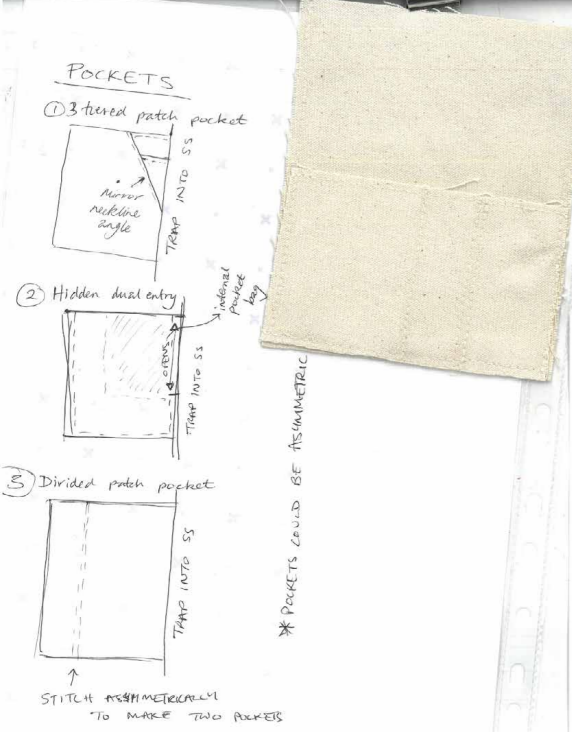 POCKETS
① 3 tiered patch pocket
Mirror
neckline
angle
TRAP INTO SS
② Hidden dual entry
internal
pocket
bag
OPENS
TRAP INTO SS
③ Divided patch pocket
TRAP INTO SS
STITCH ASYMMETRICALLY
TO MAKE TWO POCKETS
* POCKETS COULD BE ASYMMETRIC